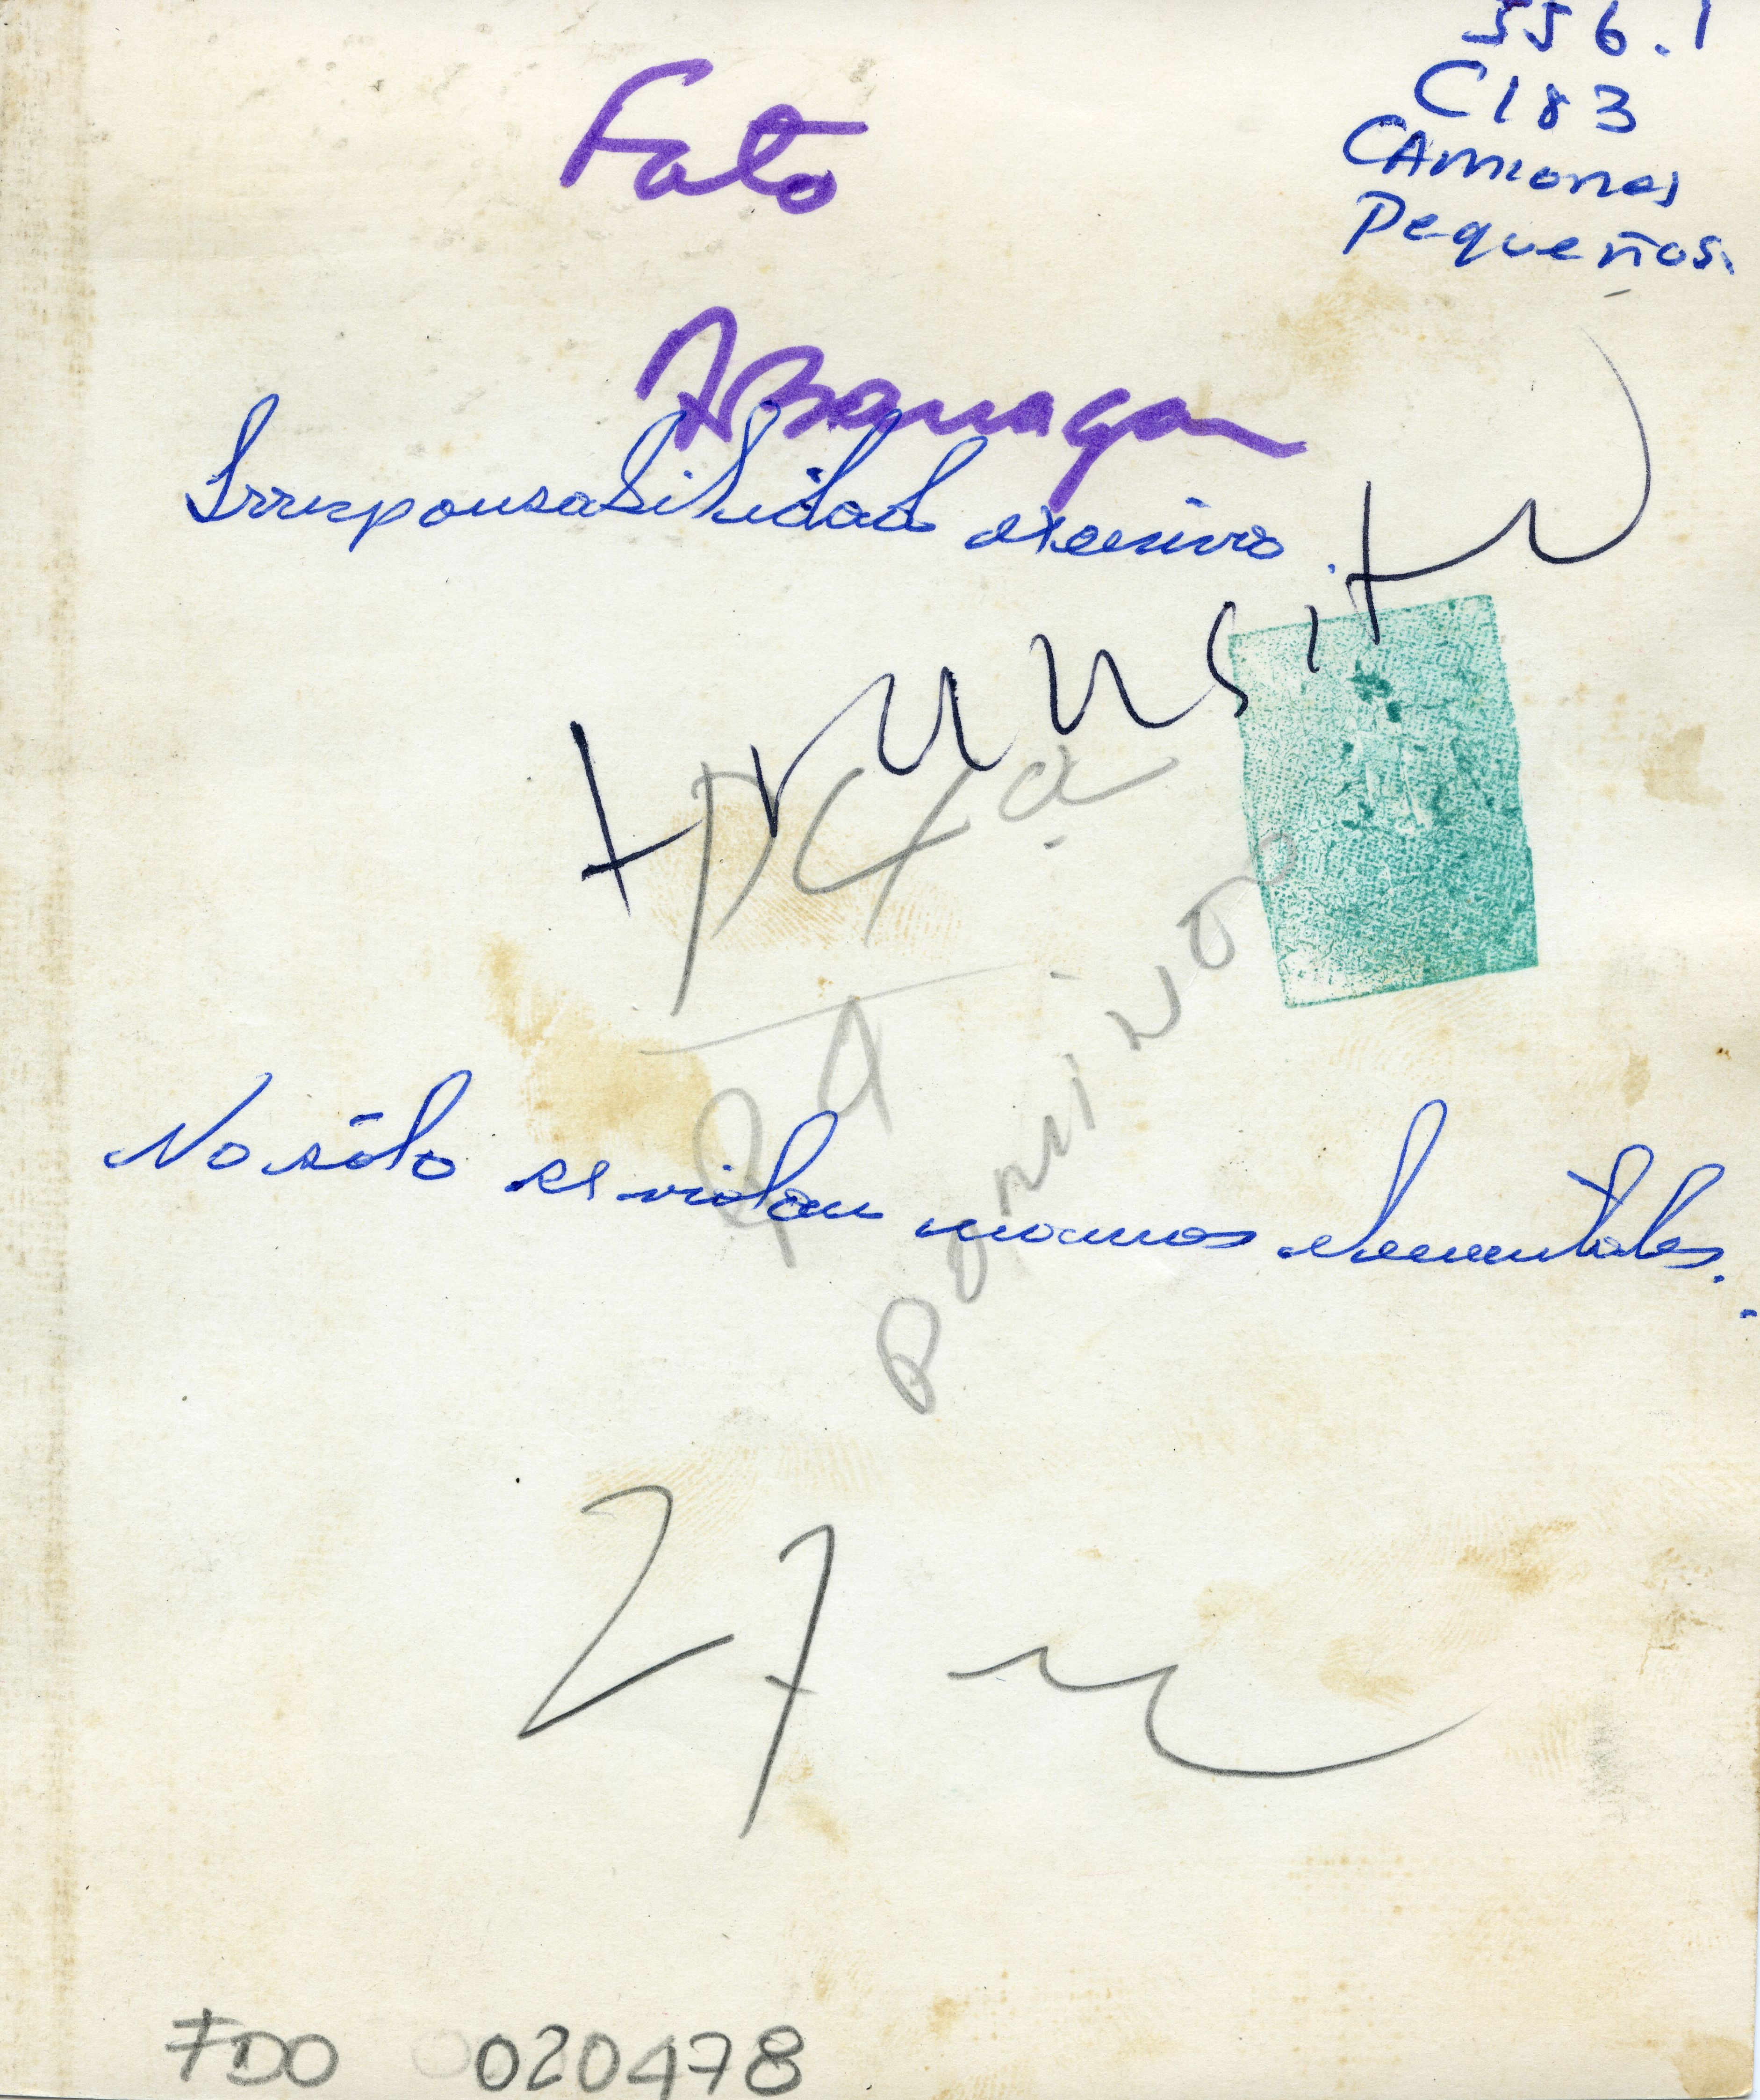 556.1
C183
CAmiones
Pequeños.
Foto
Irresponsabilidad excesiva.
transito
pag
Domingo
No sólo se violan normas elementales.
27
FDO 020478